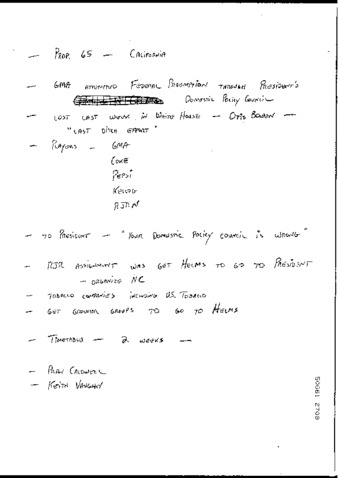 — PROP. 65 — CALIFORNIA
— GMA ATTEMPTED FEDERAL PREEMPTION THROUGH PRESIDENT'S
DOMESTIC POLICY COUNCIL
— LOST LAST WEEK IN WHITE HOUSE — OTIS BOWEN —
"LAST DITCH EFFORT"
— PLAYERS — GMA
COKE
PEPSI
KELLOG
RJRN
— TO PRESIDENT — "YOUR DOMESTIC POLICY COUNCIL IS WRONG"
— RJR ASSIGNMENT WAS GET HELMS TO GO TO PRESIDENT
— ORGANIZE NC
— TOBACCO COMPANIES INCLUDING U.S. TOBACCO
— GET GROWER GROUPS TO GO TO HELMS
— TIMETABLE — 2 WEEKS —
— ALAN CALDWELL
— KEITH VAUGHAN
50661 2708